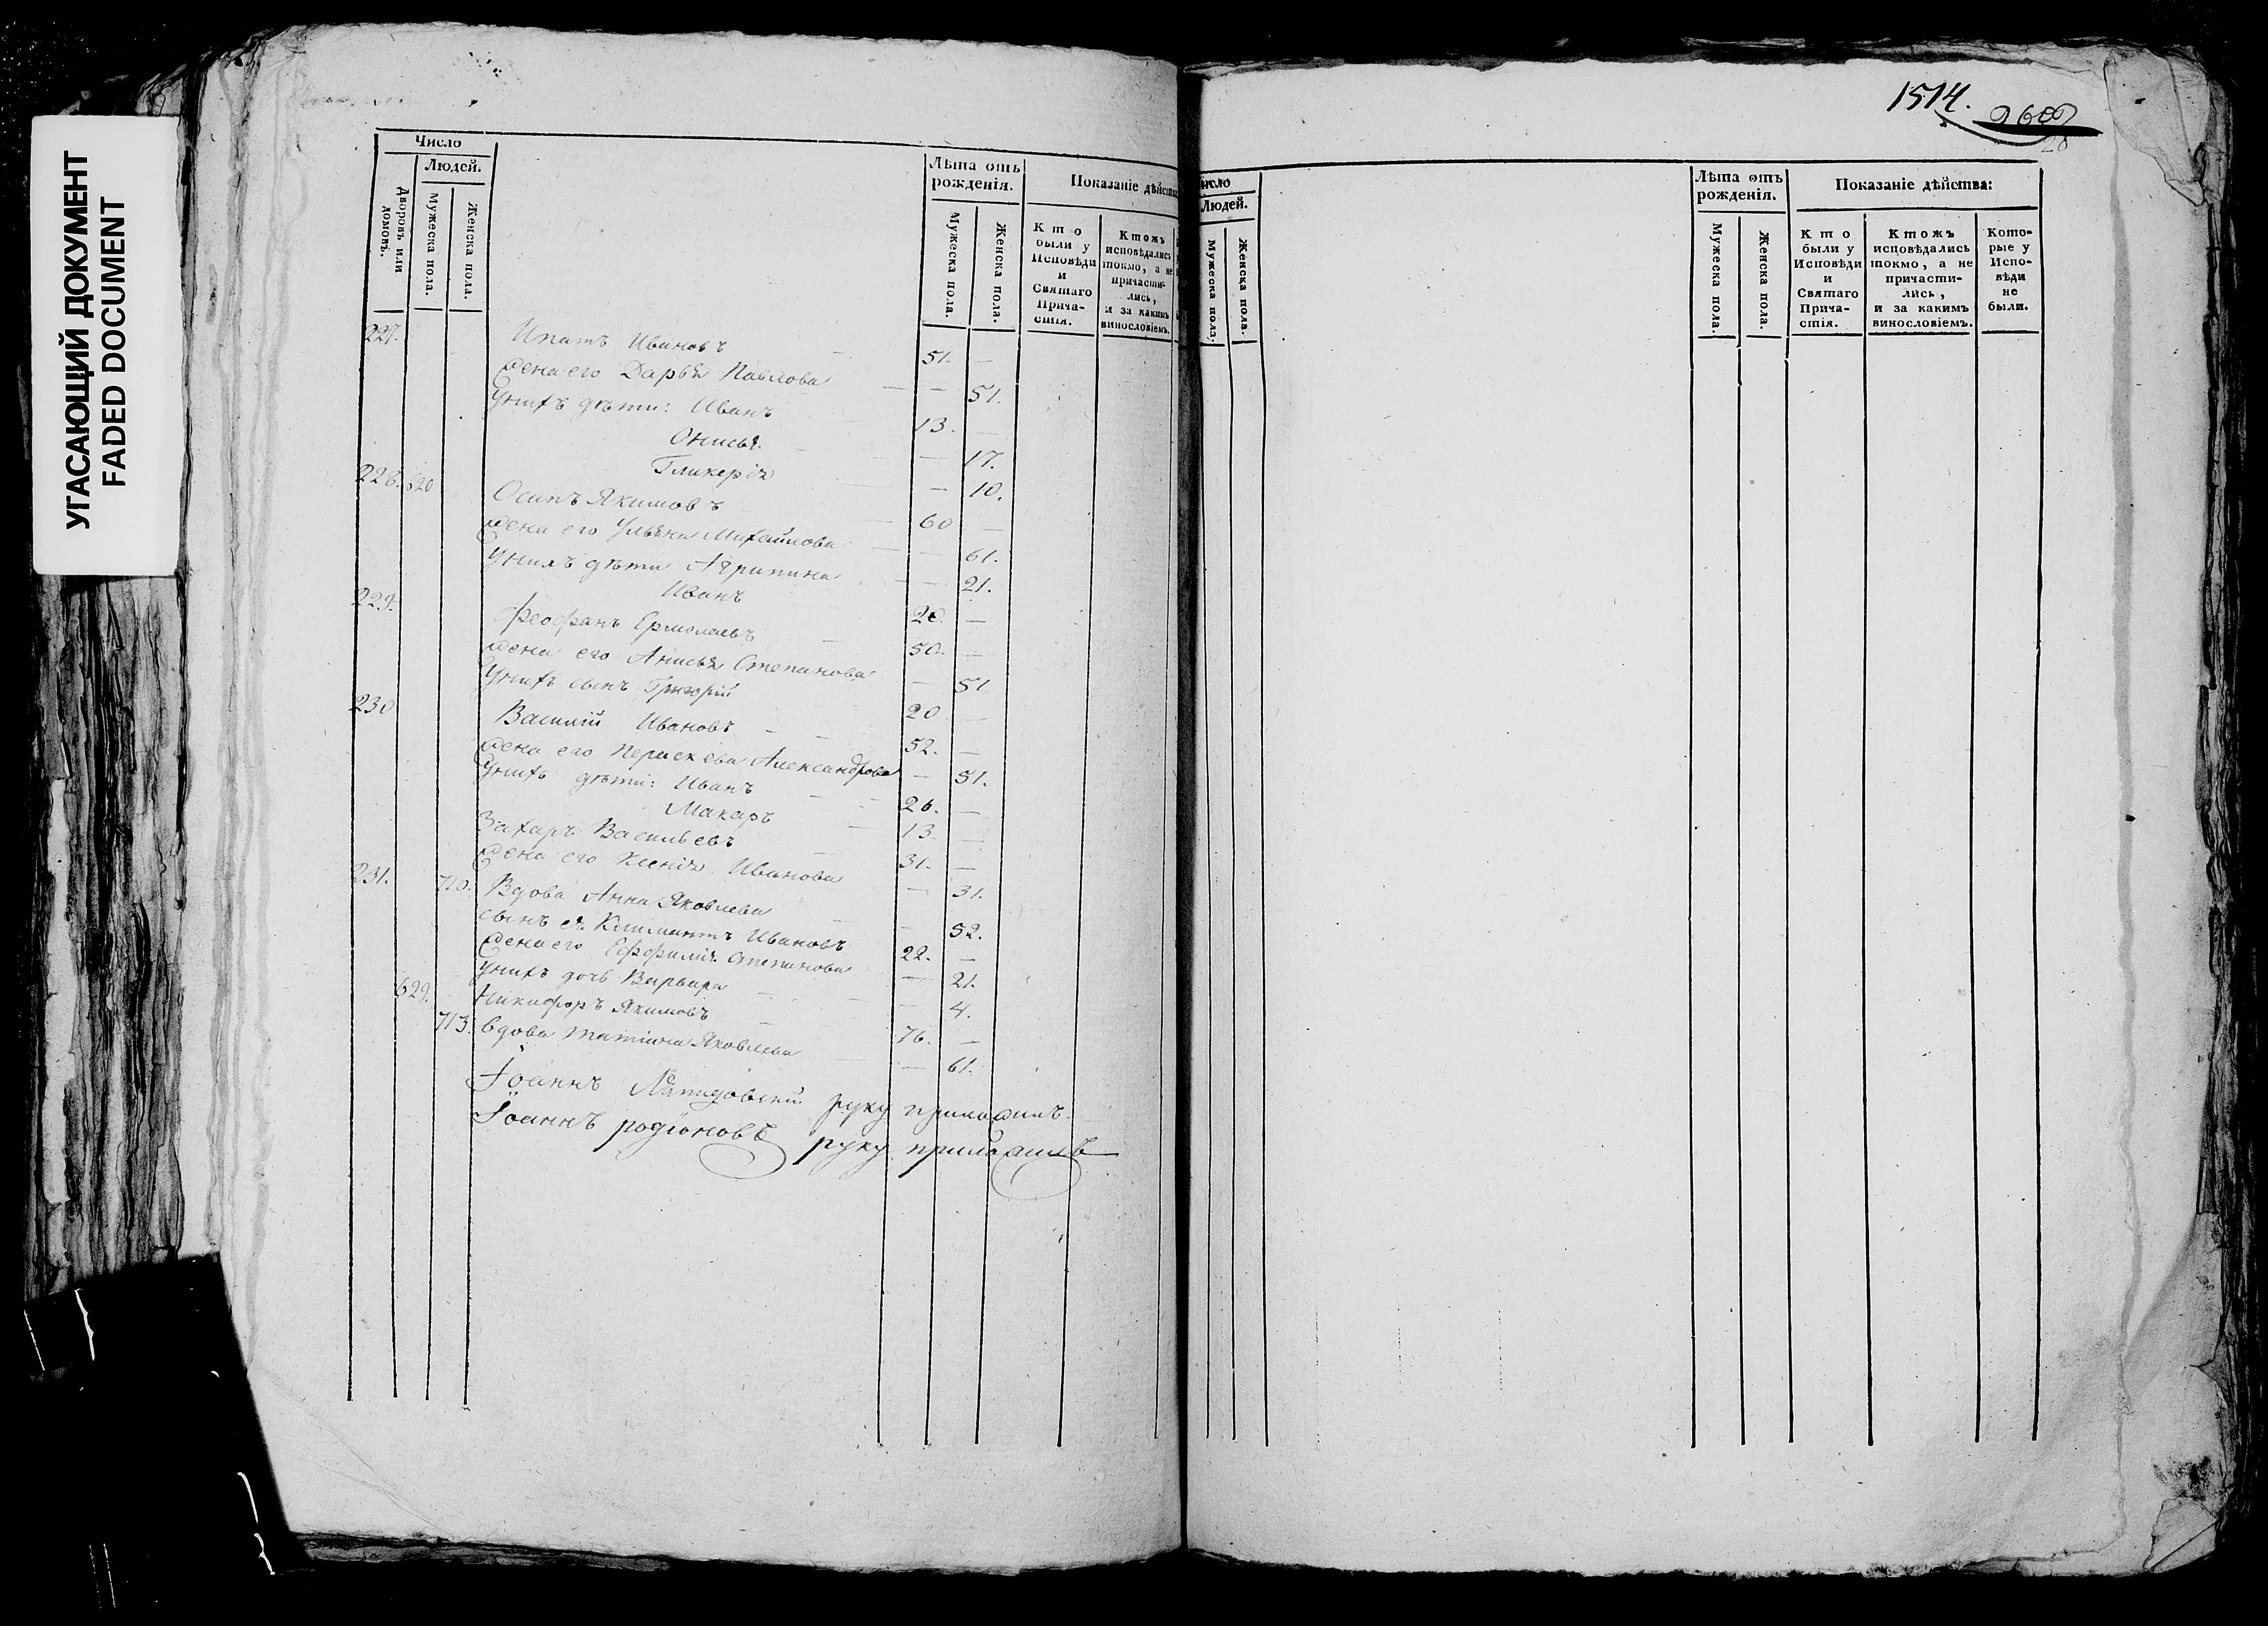 УГАСАЮЩИЙ ДОКУМЕНТ
FADED DOCUMENT
Число
Людей.
Дворовъ или домовъ.
Мужеска пола.
Женска пола.
Лѣта отъ рожденія.
Мужеска пола.
Женска пола.
Показаніе дѣйства
Кто были у Исповѣди и Святаго Причастія.
Ктожъ исповѣдались токмо, а не причастились, и за какимъ винословіемъ.
227. Ипатъ Ивановъ — 51. —
Жена его Дарья Павлова — — 51.
У нихъ дѣти: Иванъ 13. —
Онисья — 17.
Гликерія — 10.
228. 620 Осипъ Якимовъ 60 —
Жена его Ульяна Михайлова — — 61.
У нихъ дѣти Агрипина — — 21.
Иванъ 20. —
229. Феофанъ Ермолаевъ — 50. —
Жена его Анисья Степанова — 51
У нихъ сынъ Григорій 20 —
230 Василий Ивановъ — — 52. —
Жена его Параскева Александрова — 51.
У нихъ дѣти: Иванъ — — 26. —
Макаръ — 13. —
Захаръ Васильевъ — 31. —
Жена его Ксенія Иванова — 31.
231. 710. Вдова Анна Яковлева — — 52.
сынъ ея Климантъ Ивановъ 22. —
Жена его Степанова — 21.
У нихъ дочь Варвара — — — 4.
629. Никифоръ Якимовъ — 76. —
713. Вдова Татіана Яковлева — — 61.
Іоаннъ руку приложилъ.
Іоаннъ родіоновъ руку приложилъ
1514.
28
Число
Людей.
Мужеска пола.
Женска пола.
Лѣта отъ рожденія.
Мужеска пола.
Женска пола.
Показаніе дѣйства:
Кто были у Исповѣди и Святаго Причастія.
Ктожъ исповѣдались токмо, а не причастились, и за какимъ винословіемъ.
Которые у Исповѣди не были.